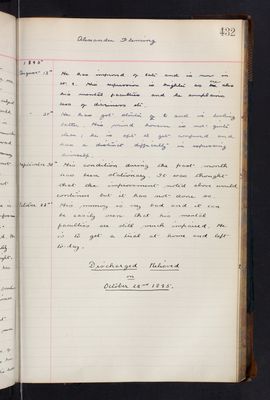 432
Alexander Fleming
1895
August 15th He has improved of late and is now in
His expression is brighter as are also
his mental faculties and he complains
less of dizziness etc.
He has got stouter and is looking
better. His mind however is not quite
clear; he is apt to get confused and
has a distinct difficulty in expressing
himself.
September 30th His condition during the past month
has been stationary. It was thought
that the improvement noted above would
continue but it has not done so.
October 22nd His memory is very bad and it can
be easily seen that his mental
faculties are still much impaired. He
is to get a trial at home and left
to-day.
Discharged Relieved
on
October 22nd 1895.